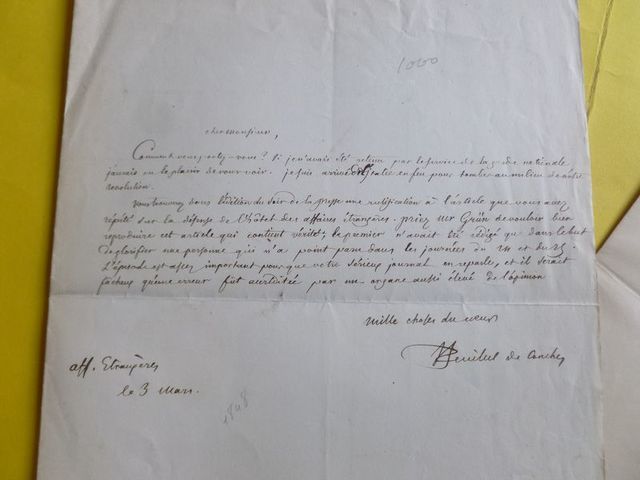 1000
cher monsieur,
Comment vous portez-vous? si je n'avais été retenu par le service de la garde nationale
j'aurais eu le plaisir de vous voir. je suis arrivé en feu pour tomber au milieu de notre
revolution.
vous trouverez dans l'édition du soir de la presse une rectification à l'article que vous avez
répété sur la défense de l'hôtel des affaires étrangères. priez Mr Grün de vouloir bien
reproduire cet article qui contient vérité; le premier n'avait été rédigé que dans le but
de glorifier une personne qui n'a point paru dans les journées du 24 et du 25.
L'épisode est assez important pour que votre sérieux journal en reparle, et il serait
facheux qu'une erreur fût accréditée par un organe aussi élevé de l'opinion
mille choses du coeur
feuillet de conches
aff. Etrangères
le 3 mars.
1848